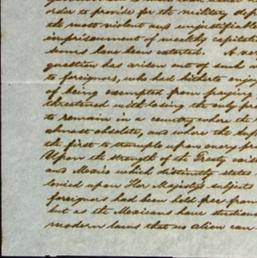 order to provide for the military
the most violent and unjustifi
imprisonment of wealthy capitalis
sums have been extorted. A ver
question has arisen out of such
to foreigners, who had hitherto enjoy
of being exempted from paying
threatened with losing the only pr
to remain in a country where the
almost obsolete, and where the
the first to trample upon every pr
Upon the strength of the Treaty exist
and Mexico which distinctly states
levied upon Her Majesty's subjects
foreigners had been held free from
but as the Mexicans have
modern laws that no alien can